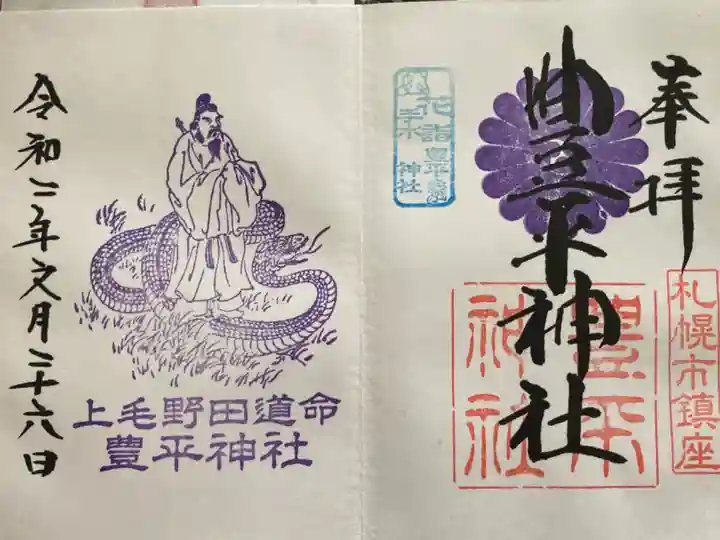 奉拝
札幌市鎮座
豊平神社
豊平神社
花詣
豊平
神社
令和二年文月二十六日
上毛野田道命
豊平神社